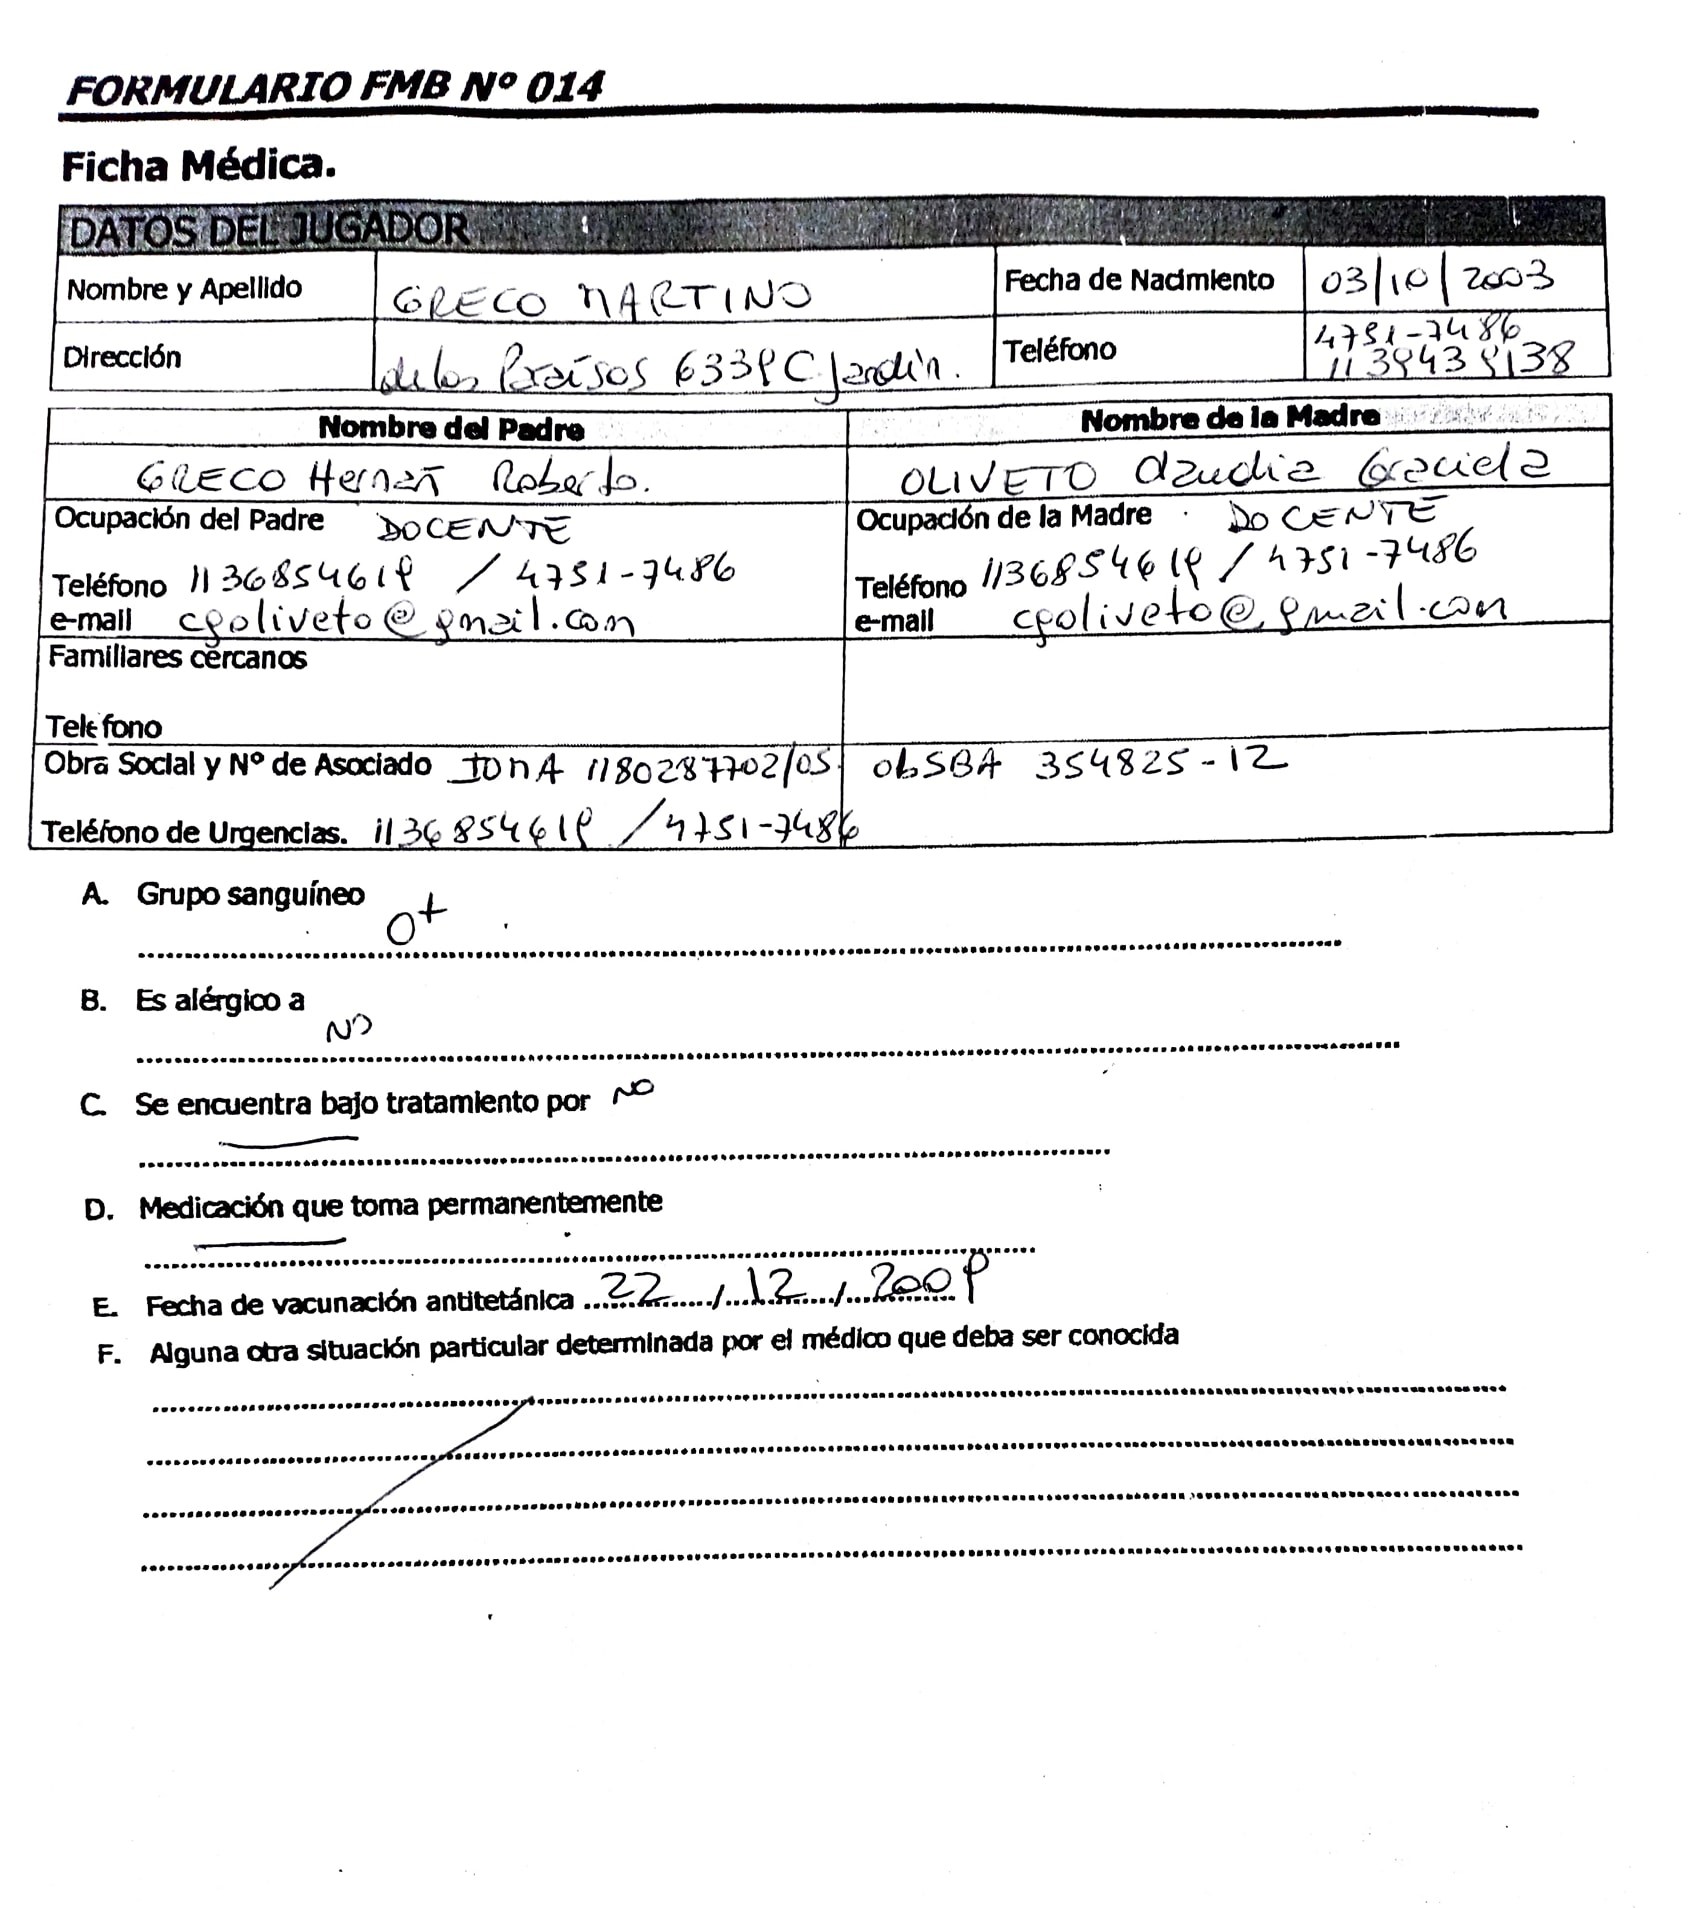 FORMULARIO FMB Nº 014
Ficha Médica.
DATOS DEL JUGADOR
Nombre y Apellido GRECO MARTINO Fecha de Nacimiento 03/10/2003
Dirección de los Paraísos 6339 C. Jardín. Teléfono 4751-7486
Nombre del Padre Nombre de la Madre
GRECO Hernán Roberto. OLIVETO Claudia Graciela
Ocupación del Padre DOCENTE Ocupación de la Madre DOCENTE
Teléfono 1136854619 / 4751-7486 Teléfono 1136854619 / 4751-7486
e-mail cgoliveto@gmail.com e-mail cgoliveto@gmail.com
Familiares cercanos
Teléfono
Obra Social y Nº de Asociado IOMA 1180287702/05 ObSBA 354825-12
Teléfono de Urgencias. 1136854619 / 4751-7486
A. Grupo sanguíneo
0+
B. Es alérgico a
NO
C. Se encuentra bajo tratamiento por NO
D. Medicación que toma permanentemente
E. Fecha de vacunación antitetánica 22 / 12 / 2009
F. Alguna otra situación particular determinada por el médico que deba ser conocida